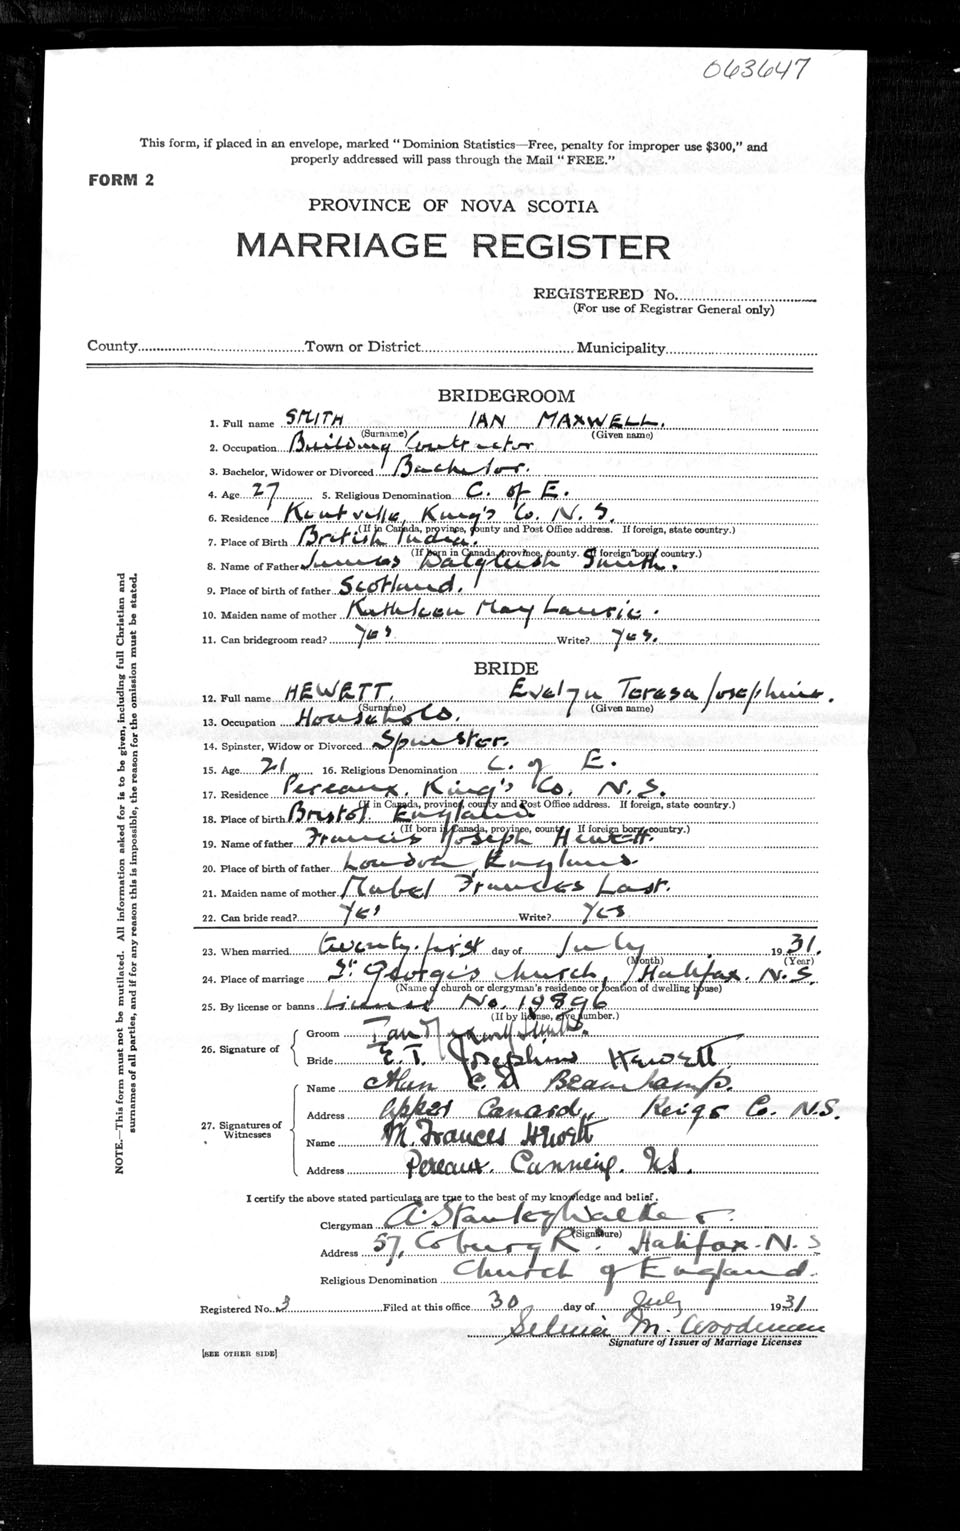 063647
This form, if placed in an envelope, marked "Dominion Statistics—Free, penalty for improper use $300," and
properly addressed will pass through the Mail "FREE."
FORM 2
PROVINCE OF NOVA SCOTIA
MARRIAGE REGISTER
REGISTERED No.
(For use of Registrar General only)
County Town or District Municipality
BRIDEGROOM
1. Full name SMITH IAN MAXWELL.
(Surname) (Given name)
2. Occupation Building Contractor
3. Bachelor, Widower or Divorced Bachelor.
4. Age 27 5. Religious Denomination C. of E.
6. Residence Kentville, King's Co. N. S.
(If in Canada, province, county and Post Office address. If foreign, state country.)
7. Place of Birth British India.
(If born in Canada, province, county. If foreign born country.)
8. Name of Father James Dalgleish Smith.
9. Place of birth of father Scotland.
10. Maiden name of mother Kathleen May Laurie.
11. Can bridegroom read? Yes Write? Yes.
BRIDE
12. Full name HEWETT, Evelyn Teresa Josephine.
(Surname) (Given name)
13. Occupation Household.
14. Spinster, Widow or Divorced Spinster.
15. Age 21 16. Religious Denomination C. of E.
17. Residence Pereaux, King's Co, N. S.
(If in Canada, province, county and Post Office address. If foreign, state country.)
18. Place of birth Bristol. England
(If born in Canada, province, county. If foreign born, country.)
19. Name of father Francis Joseph Hewett.
20. Place of birth of father London, England.
21. Maiden name of mother Mabel Frances Last.
22. Can bride read? Yes Write? Yes
23. When married twenty-first day of July 1931.
(Month) (Year)
24. Place of marriage St. George's Church, Halifax. N. S
(Name of church or clergyman's residence or location of dwelling house)
25. By license or banns License No. 19896
(If by license, give number.)
26. Signature of
Groom Ian Maxwell Smith.
Bride E. T. Josephine Hewett.
27. Signatures of Witnesses
Name Beauchamp.
Address Upper Canard, Kings Co. N.S.
Name M. Frances Hewett
Address Pereaux. Canning. N.S.
I certify the above stated particulars are true to the best of my knowledge and belief.
Clergyman A. Stanley Walker.
(Signature)
Address 57, Coburg R. Halifax. N. S
Religious Denomination Church of England.
Registered No. 3 Filed at this office 30 day of July 1931
Selina M. Woodman
Signature of Issuer of Marriage Licenses
[SEE OTHER SIDE]
NOTE.—This form must not be mutilated. All information asked for is to be given, including full Christian and
surnames of all parties, and if for any reason this is impossible, the reason for the omission must be stated.